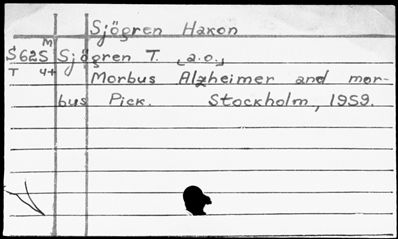 Sjögren Hakon
M
S62S Sjögren T. [a.o.]
T 4+
Morbus Alzheimer and mor-
bus Pick. Stockholm, 1959.